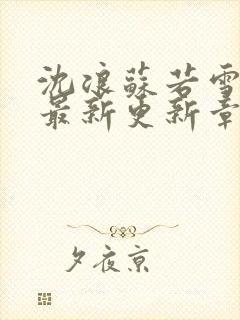 沈浪苏若雪
最新更新章
夕夜京